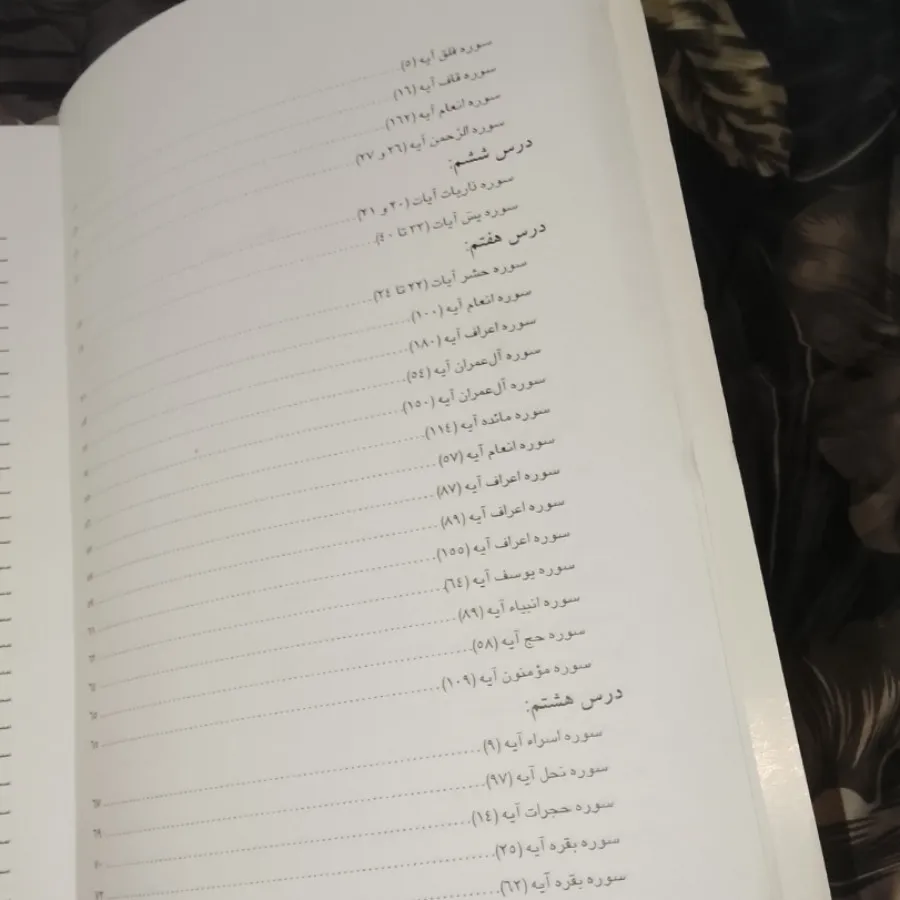 سوره فلق آیه (٥)
سوره قاف آیه (١٦)
سوره انعام آیه (١٦٢)
سوره الرّحمن آیه (٢٦ و ٢٧)
درس ششم:
سوره ذاریات آیات (٢٠ و ٢١)
سوره یس آیات (٣٣ تا ٤٠)
درس هفتم:
سوره حشر آیات (٢٢ تا ٢٤)
سوره انعام آیه (١٠٠)
سوره اعراف آیه (١٨٠)
سوره آل‌عمران آیه (٥٤)
سوره آل‌عمران آیه (١٥٠)
سوره مائده آیه (١١٤)
سوره انعام آیه (٥٧)
سوره اعراف آیه (٨٧)
سوره اعراف آیه (٨٩)
سوره اعراف آیه (١٥٥)
سوره یوسف آیه (٦٤)
سوره انبیاء آیه (٨٩)
سوره حج آیه (٥٨)
سوره مؤمنون آیه (١٠٩)
درس هشتم:
سوره اسراء آیه (٩)
سوره نحل آیه (٩٧)
سوره حجرات آیه (١٤)
سوره بقره آیه (٢٥)
سوره بقره آیه (٦٢)